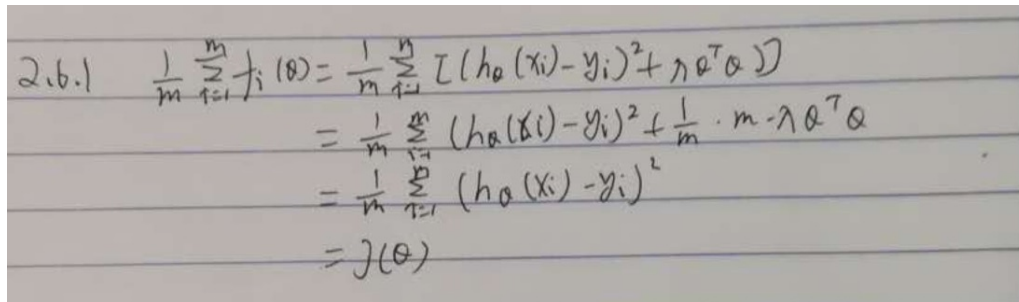 2.6.1 1/m Σ_{i=1}^{m} f_i(θ) = 1/m Σ_{i=1}^{m} [(h_θ(x_i) - y_i)² + λθ^Tθ]
= 1/m Σ_{i=1}^{m} (h_θ(x_i) - y_i)² + 1/m · m · λθ^Tθ
= 1/m Σ_{i=1}^{m} (h_θ(x_i) - y_i)²
= J(θ)